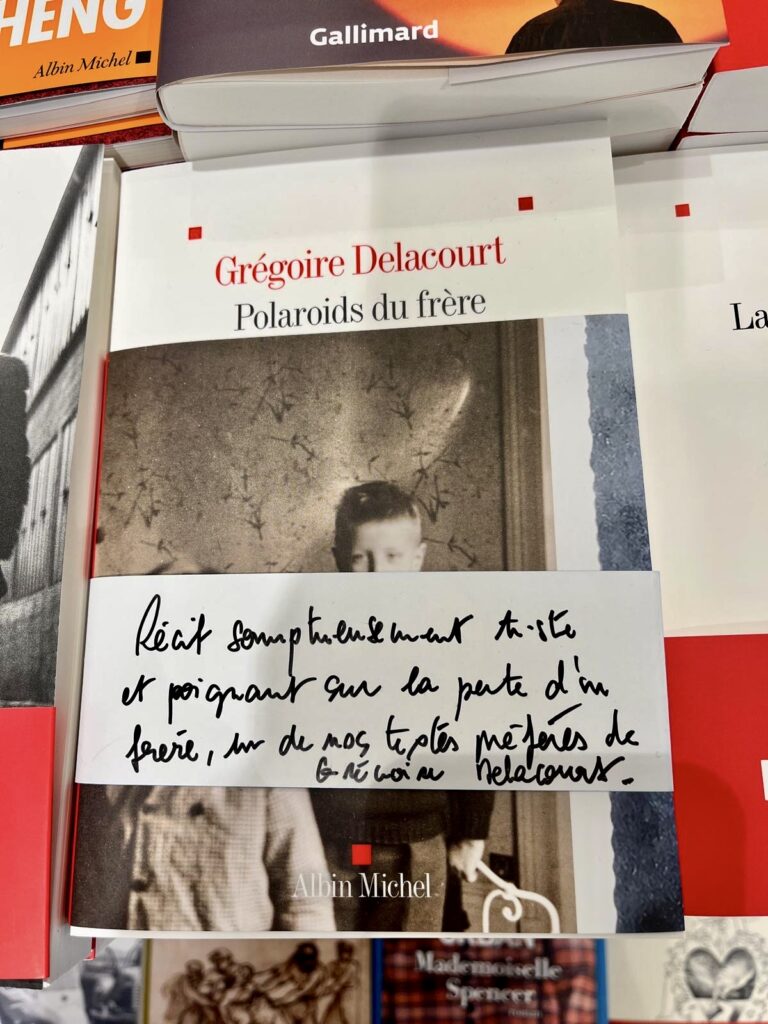 HENG
Albin Michel
Gallimard
Grégoire Delacourt
Polaroids du frère
La
Récit somptueusement triste
et poignant sur la perte d'un
frère, un de nos textes préférés de
Grégoire Delacourt.
Albin Michel
Mademoiselle
Spencer
roman